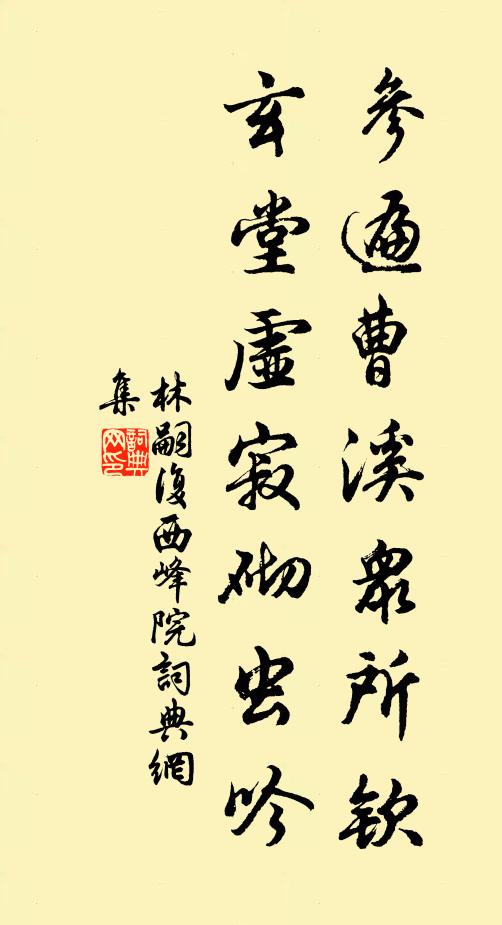 參遍曹溪眾所欽
玄堂虛寂砌虫吟
林嗣復西峰院詞典網
集
詞典网印